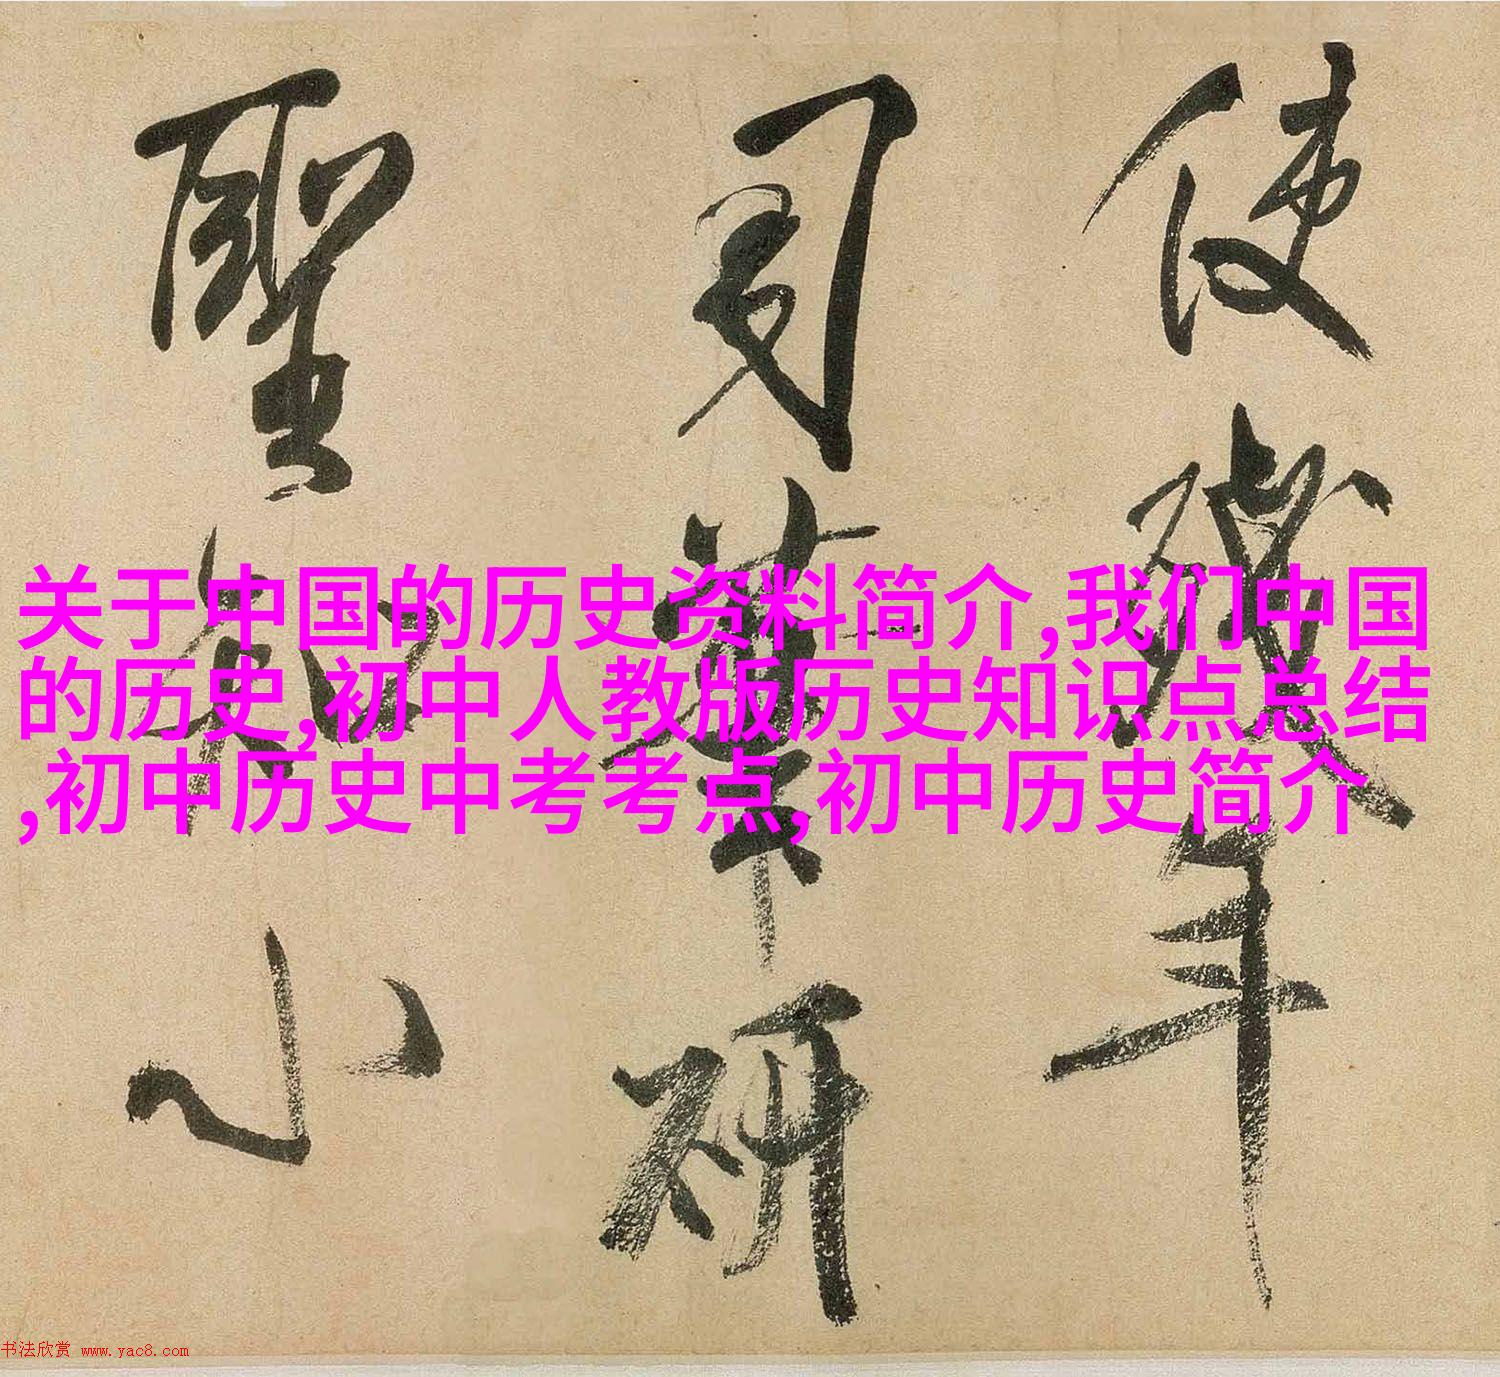 使残年
司笔研
聖知小
关于中国的历史资料简介,我们中国
的历史,初中人教版历史知识点总结
,初中历史中考考点,初中历史简介
书法欣赏 www.yac8.com